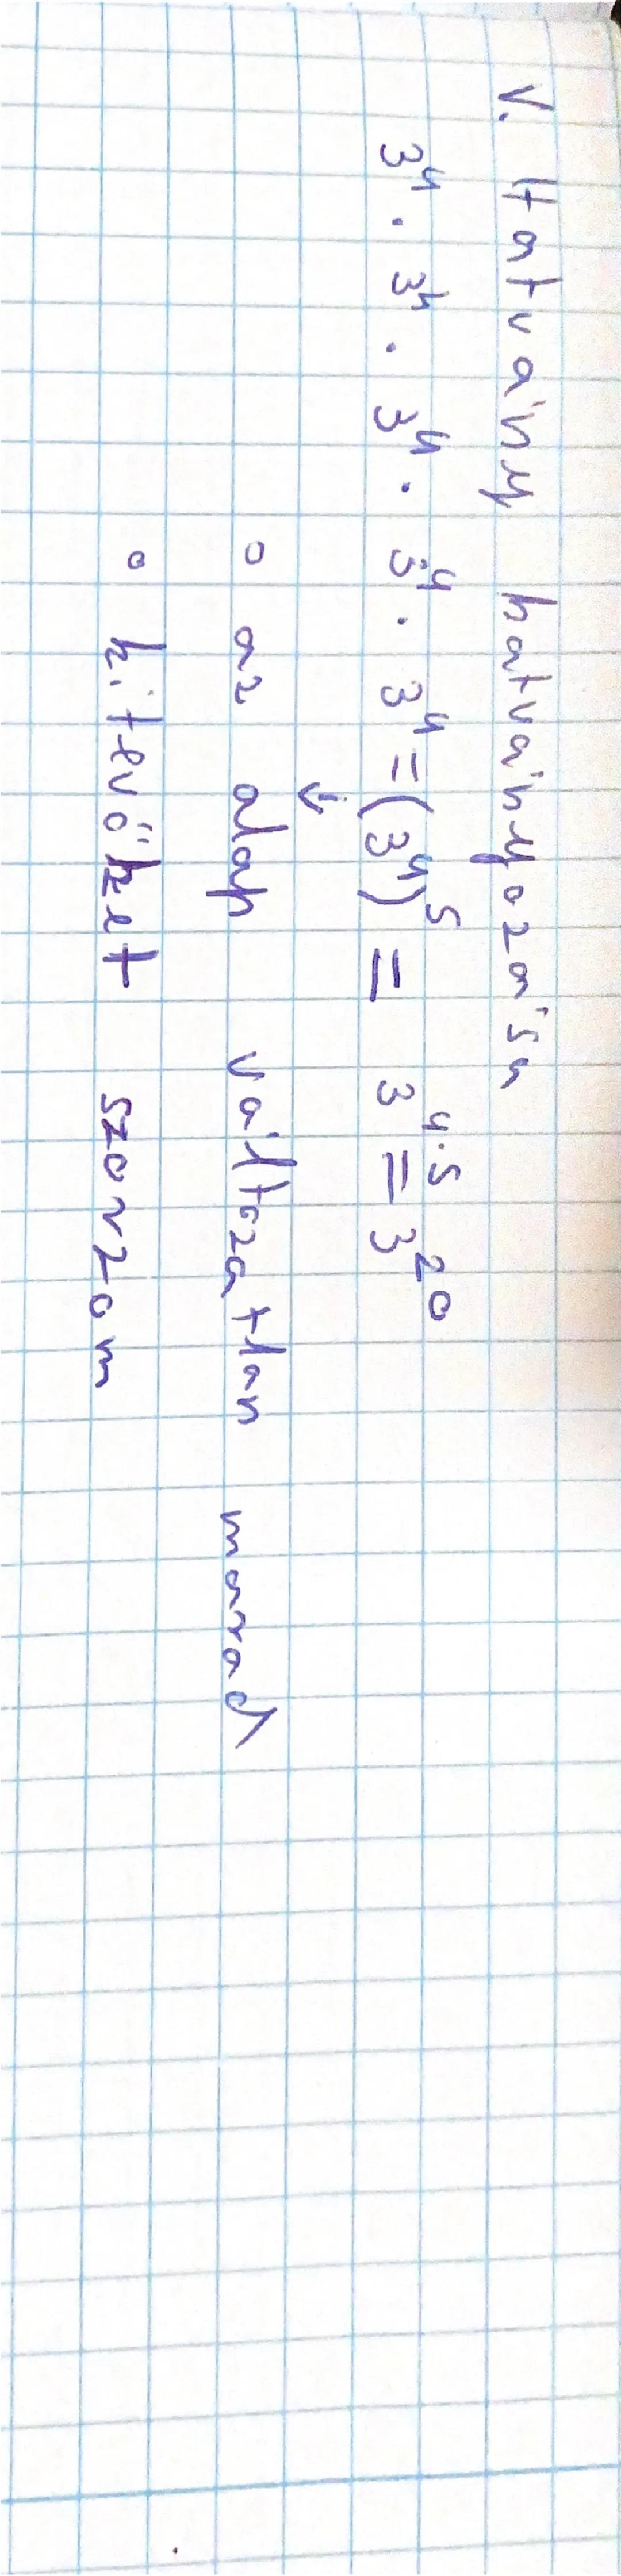 V. Hatvány hatványozása
3⁴ · 3⁴ · 3⁴ · 3⁴ · 3⁴ = (3⁴)⁵ = 3⁴·⁵ = 3²⁰
↓
○ az alap változatlan marad
○ kitevőket szorzom